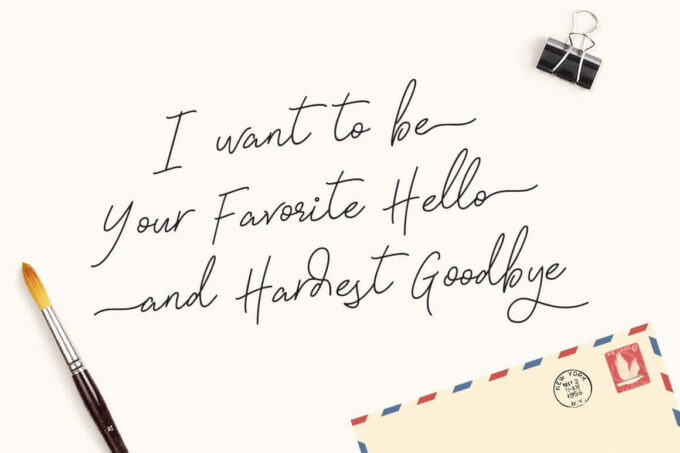 I want to be
Your Favorite Hello
and Hardest Goodbye
NEW YORK
1956
N.Y.